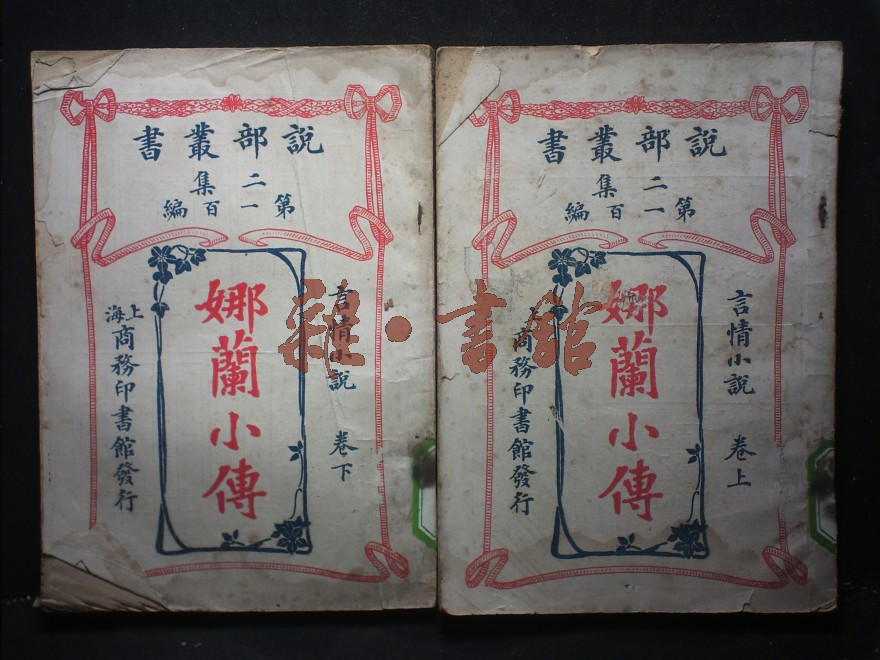 說部叢書
第二集一百編
言情小說 卷上
娜蘭小傳
商務印書館發行
說部叢書
第二集一百編
言情小說 卷下
娜蘭小傳
上海商務印書館發行
雜·書館